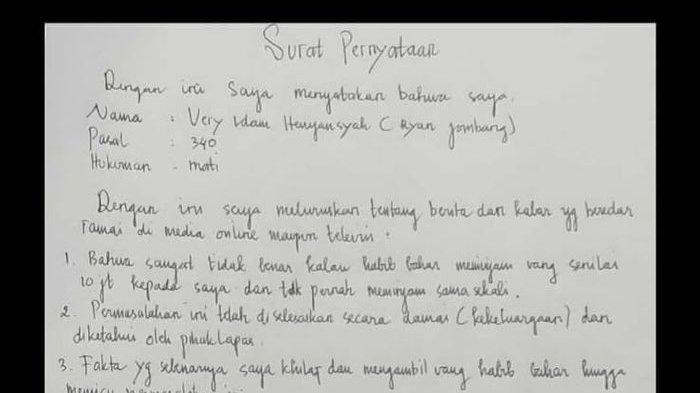 Surat Pernyataan
Dengan ini saya menyatakan bahwa saya.
Nama : Very Idam Henyansyah (Ryan Jombang)
Pasal : 340
Hukuman - mati
Dengan ini saya meluruskan tentang berita dan kabar yg beredar
ramai di media online maupun televisi :
1. Bahwa sangat tidak benar kalau habib bahar meminjam uang senilai
10 jt kepada saya dan tdk pernah meminjam sama sekali.
2. Permasalahan ini tdah diselesaikan secara damai (kekeluargaan) dan
diketahui oleh pihak lapas.
3. Fakta yg sebenarnya saya khilaf dan mengambil uang habib bahar hingga